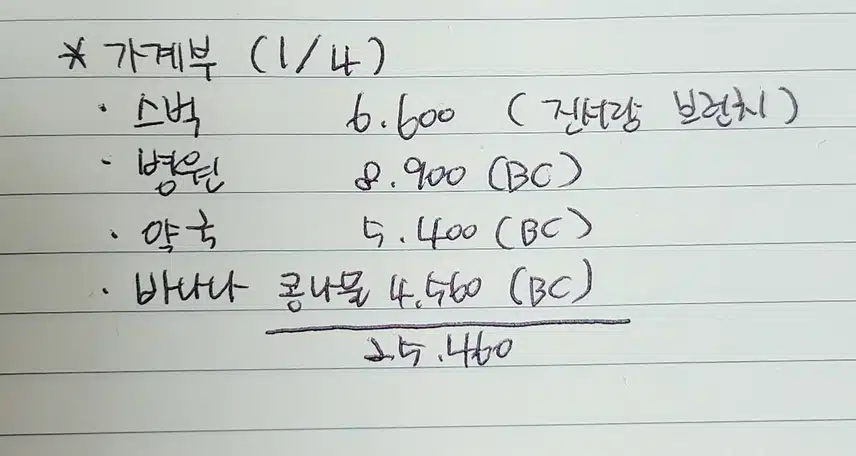 * 가계부 (1/4)
· 스벅 6.600 (진서랑 브런치)
· 병원 8.900 (BC)
· 약국 5.400 (BC)
· 바나나 콩나물 4.560 (BC)
25.460